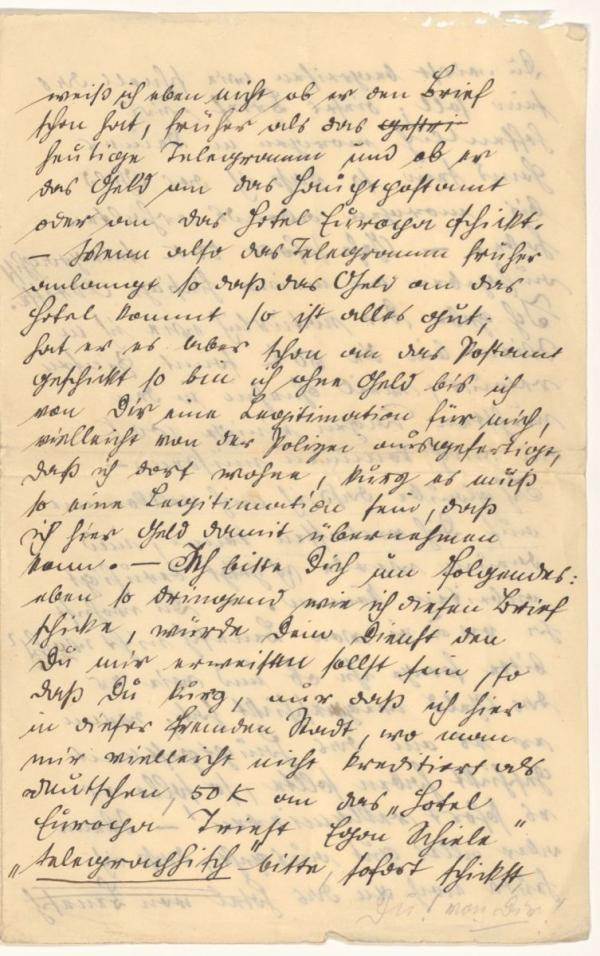 weiß ich eben nicht ob er den Brief
schon hat, früher als das gestri
heutige Telegramm und ob er
das Geld an das Hauptpostamt
oder an das Hotel Europa schickt.
– Wenn also das Telegramm früher
anlangt so daß das Geld an das
Hotel kommt so ist alles gut;
hat er es aber schon an das Postamt
geschickt so bin ich ohne Geld bis ich
von Dir eine Legitimation für mich,
vielleicht von der Polizei ausgefertigt,
daß ich dort wohne, kurz es muß
so eine Legitimation sein, daß
ich hier Geld damit übernehmen
kann. – Ich bitte Dich um folgendes:
eben so dringend wie ich diesen Brief
schicke, würde Dein Dienst den
Du mir erweisen sollst sein, so
daß Du kurz, nur daß ich hier
in dieser fremden Stadt, wo man
mir vielleicht nicht kreditiert als
deutschen, 50 K an das „Hotel
Europa – Triest Egon Schiele"
„telegraphisch" bitte, sofort schickst
Du! von Dir!